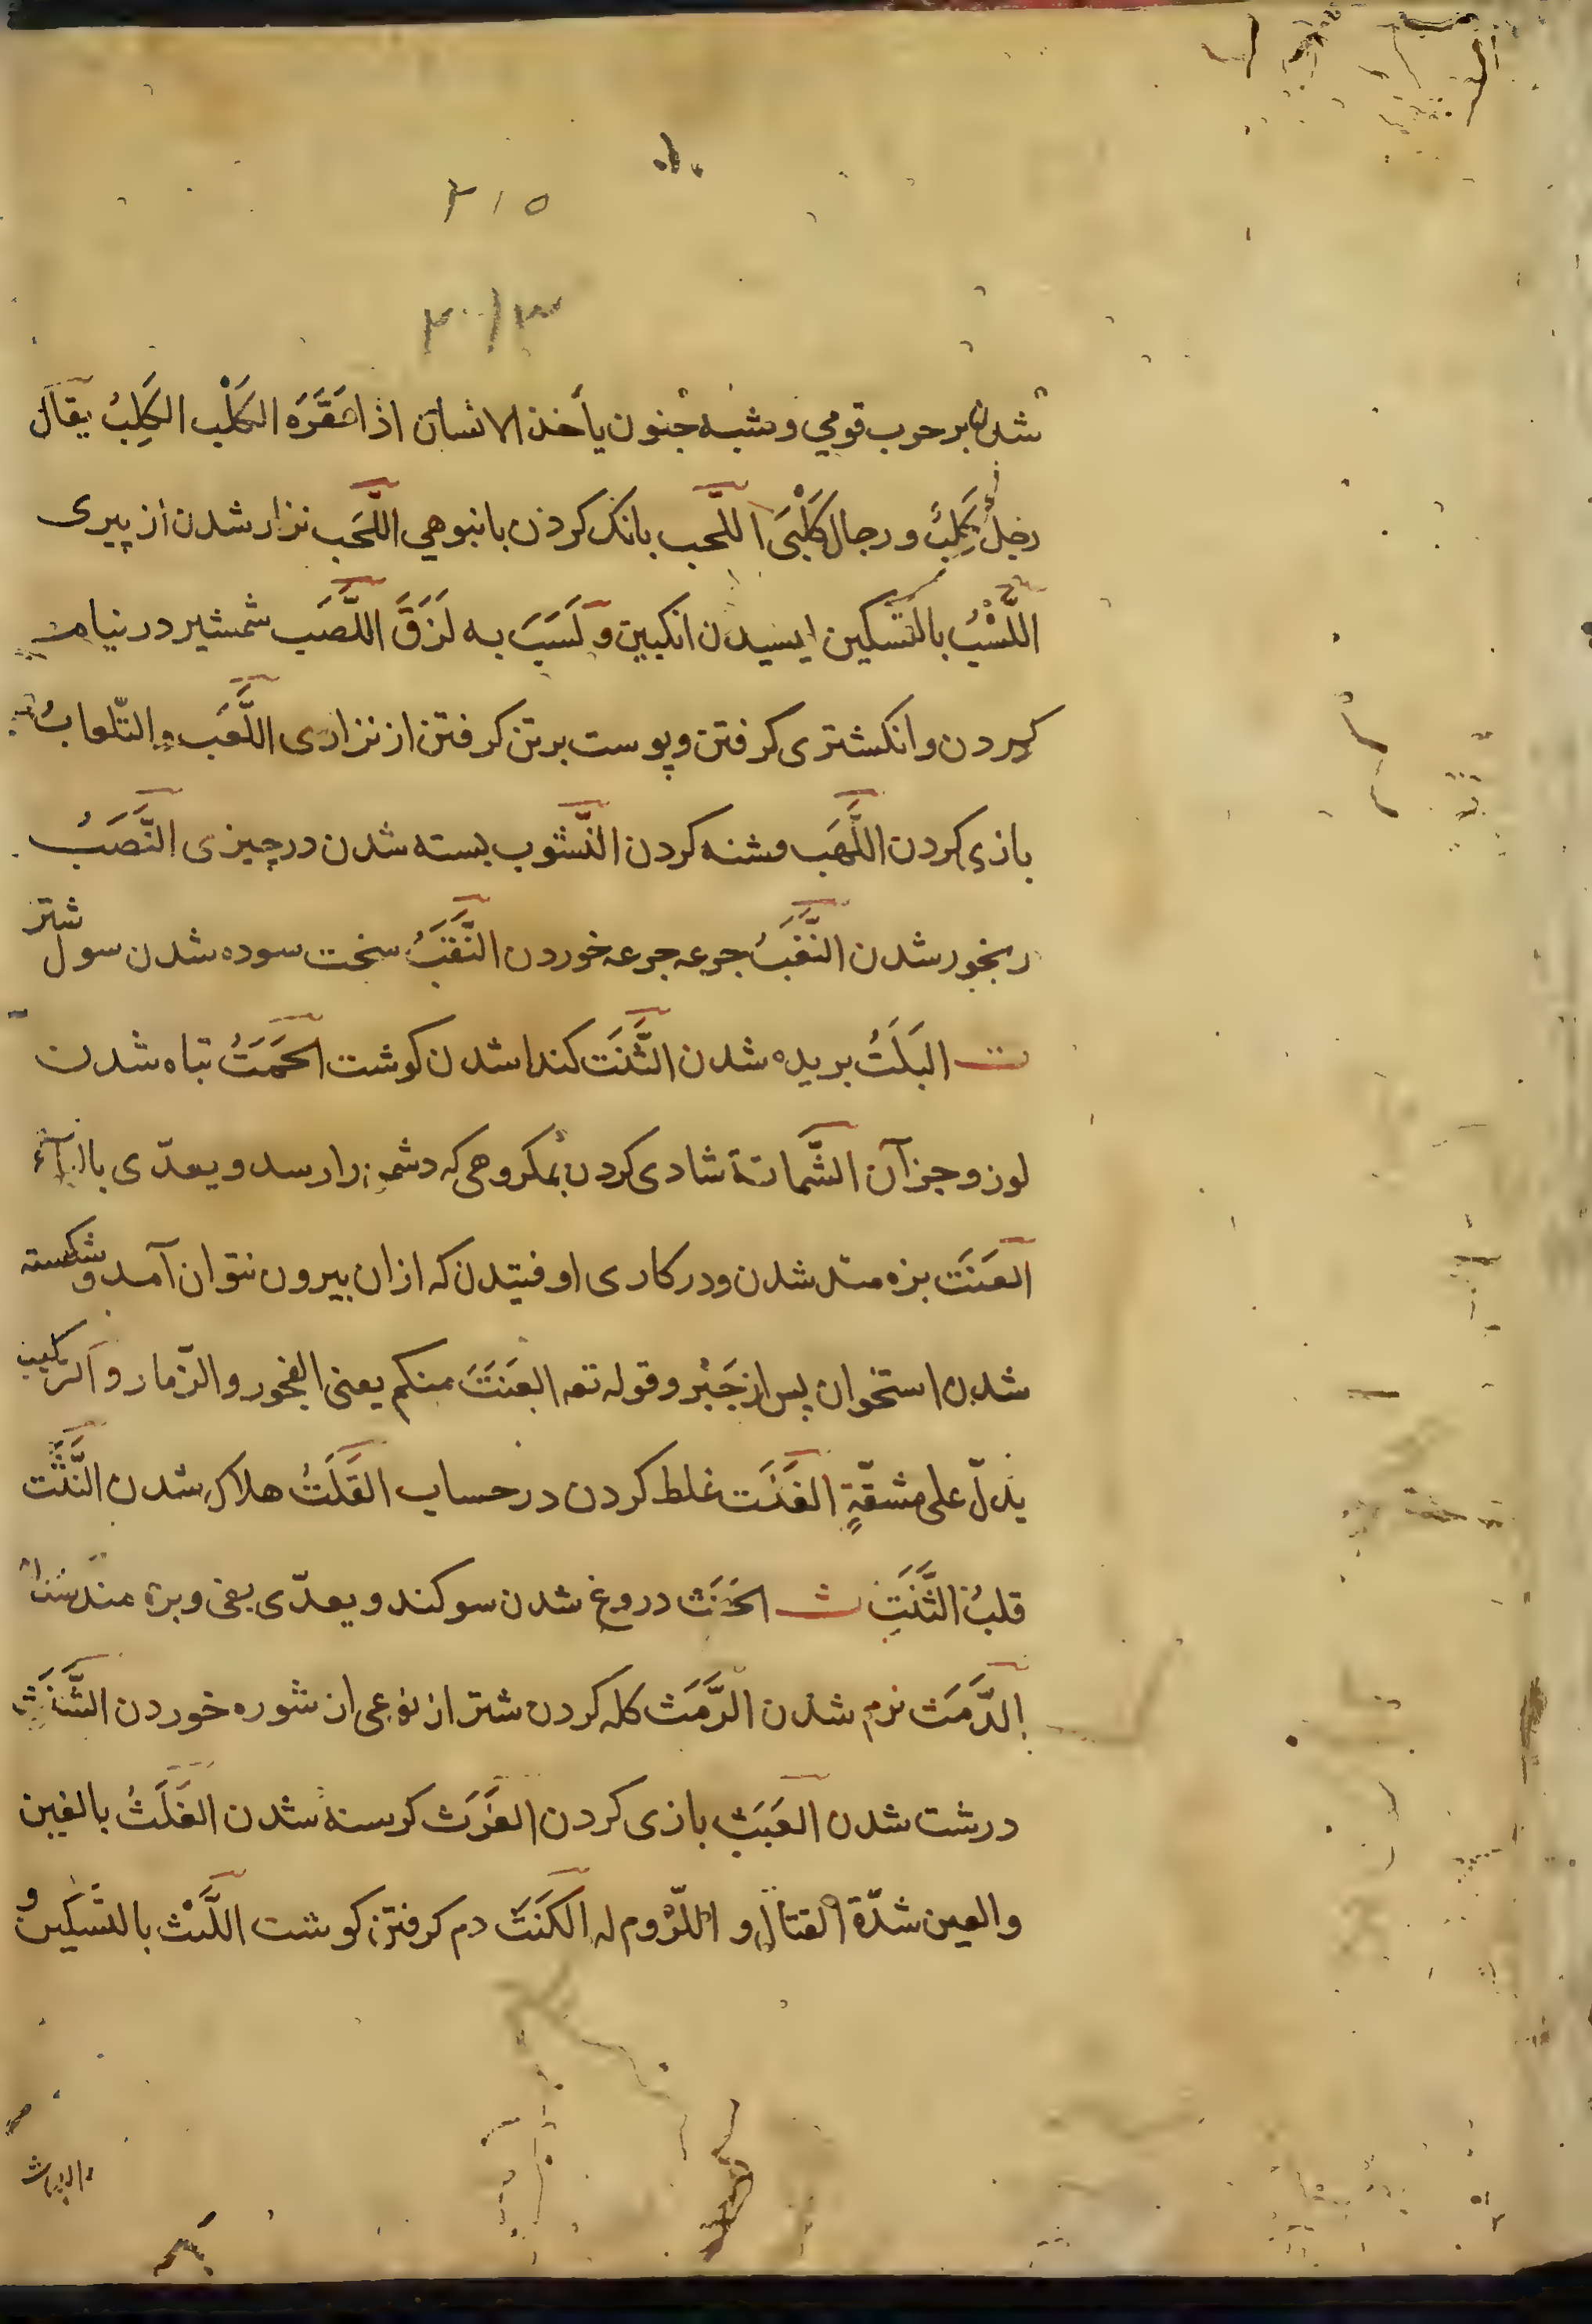 ۲۱۵
۲۰۱۳
شدن بر حرب قومي وشبه جنون يأخذ الانسان اذا عَقَرَه الكَلْب الكَلِبُ يقال
رجلٌ كَلِبٌ ورجال كَلْبَى اللَّجب بانک کردن بانبوهي اللَّحَب نزار شدن از پیری
اللَّسْبُ بالتسكين ليسیدن انكبين و لَسَبَ به لَزَقَ اللَّصَب شمشیر در نیام
کیر دن وانکشتری کرفتن و پوست برتن کرفتن از نزاری اللَّعَب والتّلعابُ
بازی کردن اللَّهَب تشنه کردن النَّشوب بسته شدن در چیزی النَّصَبُ
رنجور شدن النَّغَبُ جرعه جرعه خوردن النَّقَبُ سخت سوده شدن سول شتر
ت البَلَتُ بریده شدن الثَّنَت كندا شدن كوشت الحَمَتُ تباه شدن
لوز وجز آن الشَّماتة شادی کردن بمکروهی که دشمن را رسد ویعدّی بالبآء
العَنَت بزه مند شدن ودر کاری اوفتیدن که ازان بیرون نتوان آمد و شکسته
شدن استخوان پس از جَبْر وقوله تعه العَنَتَ منكم يعنى الفجور والزّمار والترکیب
يدلّ على مشقّةٍ الغَلَت غلط کردن در حساب القَلَتُ هلاک شدن النَّثَت
قلبُ الثَّنَتِ ث الحَنَث دروغ شدن سوکند ویعدّی بفی وبزه مند شدن
الدَّمَث نرم شدن الرَّمَث کله کردن شتر از نوعی از شوره خوردن الشَّنَث
درشت شدن العَبَث بازی کردن الغَرَث کرسنه شدن الغَلَثُ بالغین
والعین شدّة القتال و اللّزوم له الكَنَتَ دم کرفتن کوشت اللَّبْث بالتسكين و
واللباث